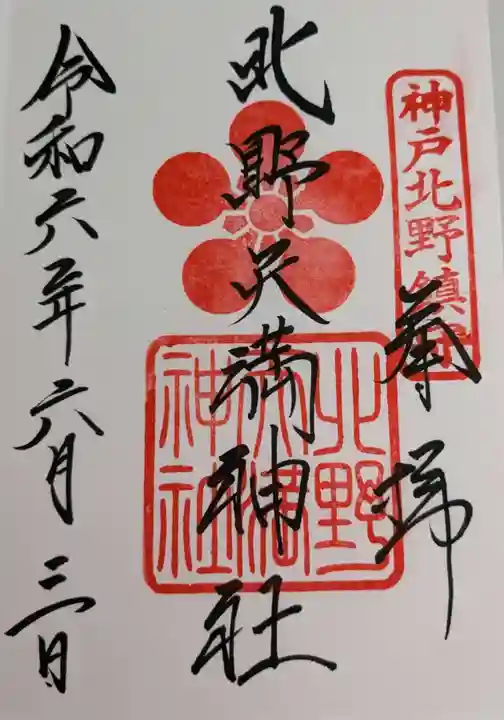 神戸北野鎮守
奉拝
北野天満神社
北野
天満
神社
令和六年六月三日